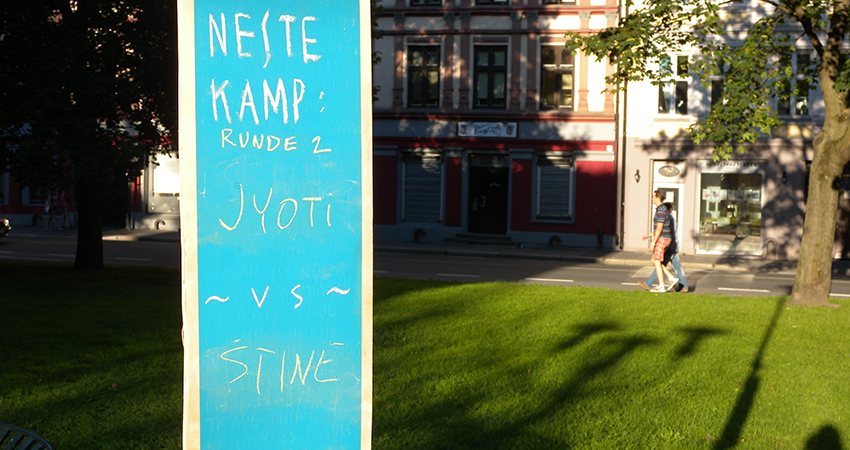 NESTE
KAMP:
RUNDE 2
JYOTI
~ VS ~
STINE